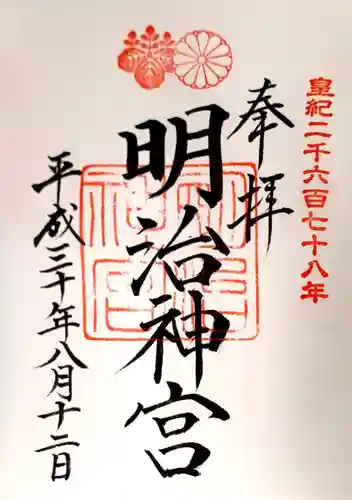 皇紀二千六百七十八年
奉拝
明治神宮
平成三十年八月十二日